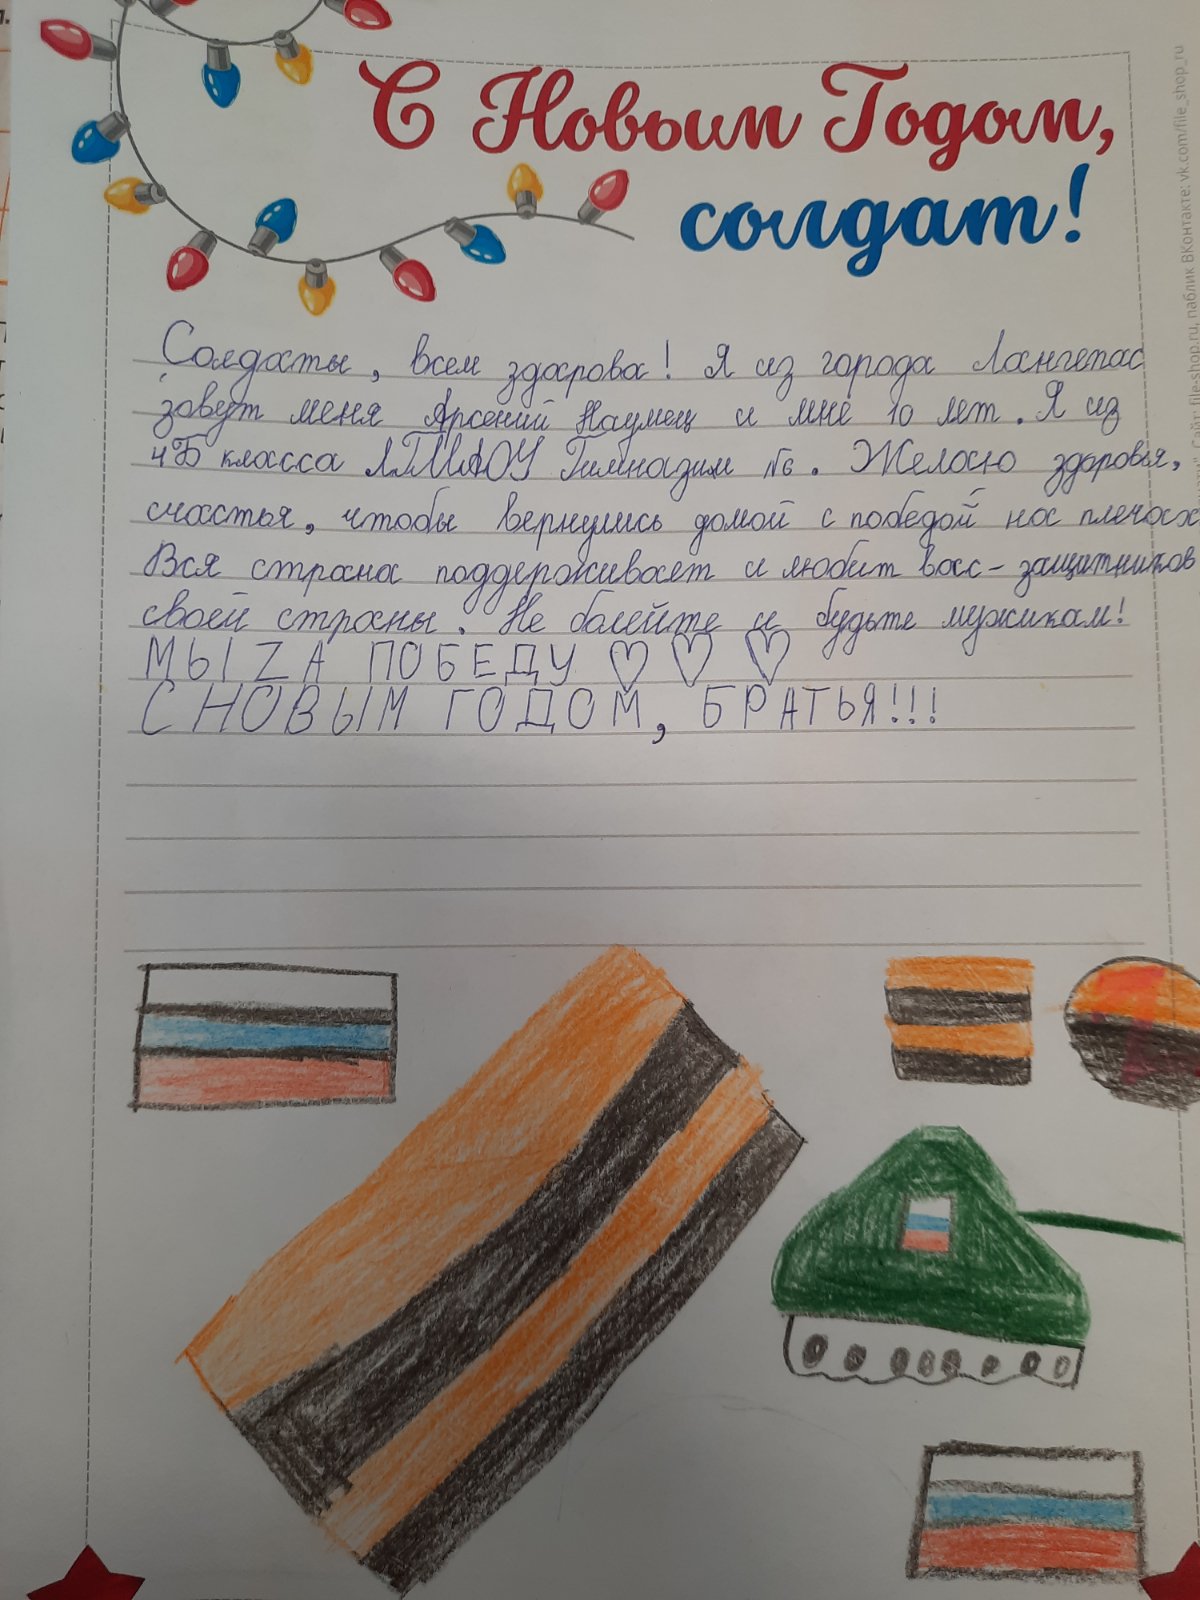 С Новым Годом,
солдат!
Солдаты, всем здарова! Я из города Лангепас
зовут меня Арсений Наумец и мне 10 лет. Я из
4Б класса ЛГМАОУ Гимназим №6. Желаю здоровья,
счастья, чтобы вернулись домой с победой на плечах
Вся страна поддерживает и любит вас - защитников
своей страны. Не болейте и будьте мужикам!
МЫ ZА ПОБЕДУ ♡ ♡ ♡
С НОВЫМ ГОДОМ, БРАТЬЯ!!!
Сайт file-shop.ru, паблик ВКонтакте: vk.com/file_shop_ru